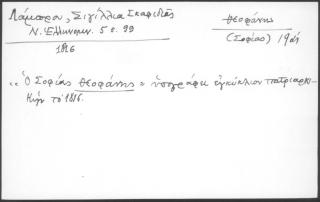 Λάμπρου, Σιγίλλια Σκαφιδιᾶς
Ν. Ἑλληνομν. 5 σ. 99
1816
Θεοφάνης
(Σοφίας)
«Ὁ Σοφίας Θεοφάνης» ὑπογράφει ἐγκύκλιον πατριαρχι-
κὴν τὸ 1816.